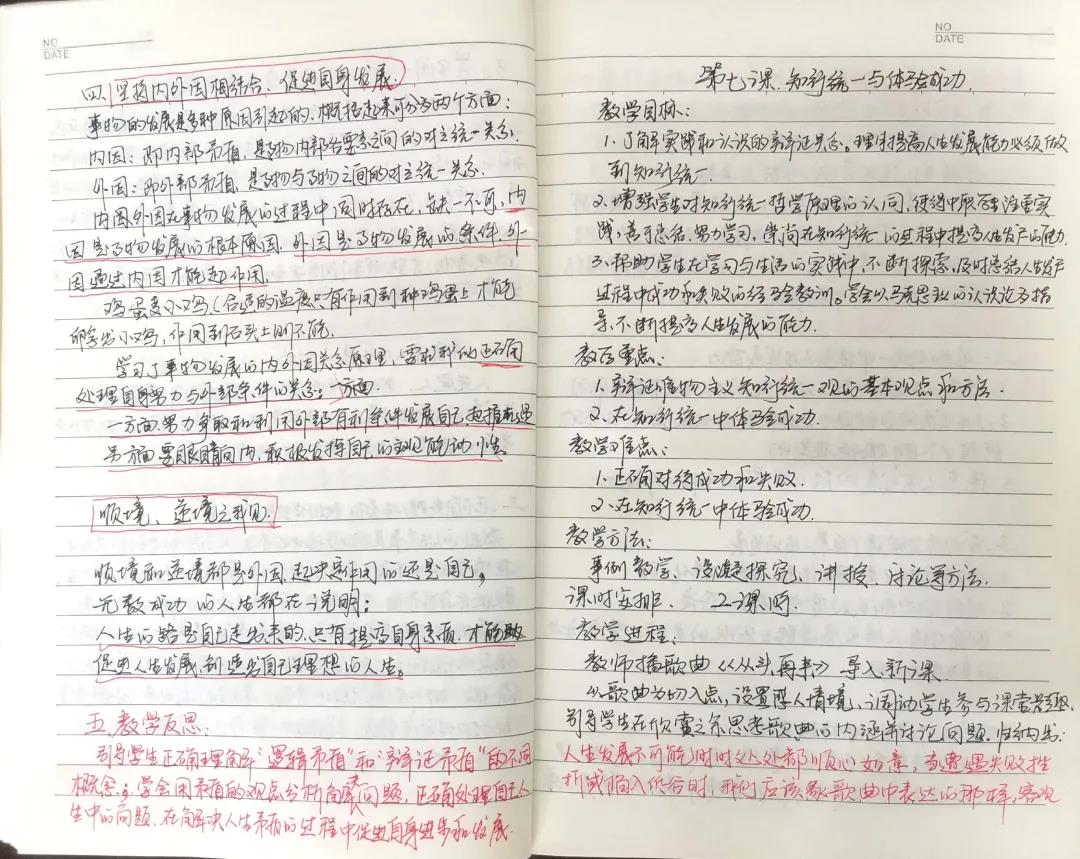 NO
DATE
四. 坚持内外因相结合、促进自身发展.
事物的发展是多种原因引起的. 概括起来可分为两个方面:
内因: 即内部矛盾, 是事物内部各要素之间的对立统一关系.
外因: 即外部矛盾, 是事物与事物之间的对立统一关系.
内因外因在事物发展的过程中同时存在, 缺一不可, 内
因是事物发展的根本原因. 外因是事物发展的条件. 外
因通过内因才能起作用.
鸡蛋变小鸡(合适的温度只有作用到种鸡蛋上才能
孵出小鸡, 作用到石头上则不能.
学习了事物发展的内外因关系原理, 要求我们正确
处理自身努力与外部条件的关系: 一方面
一方面, 努力争取和利用外部有利条件发展自己,
另方面要眼睛向内, 积极发挥自己的主观能动性。
顺境、逆境之我见.
顺境和逆境都是外因, 起决定作用的还是自己。
无数成功的人生都在说明:
人生的路是自己走出来的, 只有提高自身素质, 才能
促进人生发展, 创造出自己理想的人生。
五. 教学反思:
引导学生正确理解“逻辑矛盾”和“辩证矛盾”的不同
概念. 学会用矛盾的观点分析问题, 正确处理自己人
生中的问题. 在解决人生矛盾的过程中促进自身进步和发展.
NO
DATE
第七课. 知行统一与体验成功.
教学目标:
1. 了解实践和认识的辩证关系。理解提高人生发展能力必须做
到知行统一.
2. 增强学生对知行统一哲学原理的认同, 使得中职学生注重实
践, 善于总结, 努力学习, 崇尚在知行统一的过程中提高人生发展的能力.
3. 帮助学生在学习与生活的实践中, 不断探索, 及时总结人生发展
过程中成功和失败的经验教训。学会以马克思主义的认识论为指
导, 不断提高人生发展的能力.
教学重点:
1. 辩证唯物主义知行统一观的基本观点和方法.
2. 在知行统一中体验成功.
教学难点:
1. 正确对待成功和失败.
2. 在知行统一中体验成功.
教学方法:
事例教学、设疑探究、讲授、讨论等方法.
课时安排. 2课时.
教学进程:
教师播歌曲《从头再来》导入新课
以歌曲为切入点, 设置情境, 调动学生参与课堂.
引导学生在欣赏之余思考歌曲的内涵并讨论问题. 归纳出:
人生发展不可能时时处处都顺心如意, 当遭遇失败挫
折或陷入低谷时, 我们应该象歌曲中表达的那样, 客观